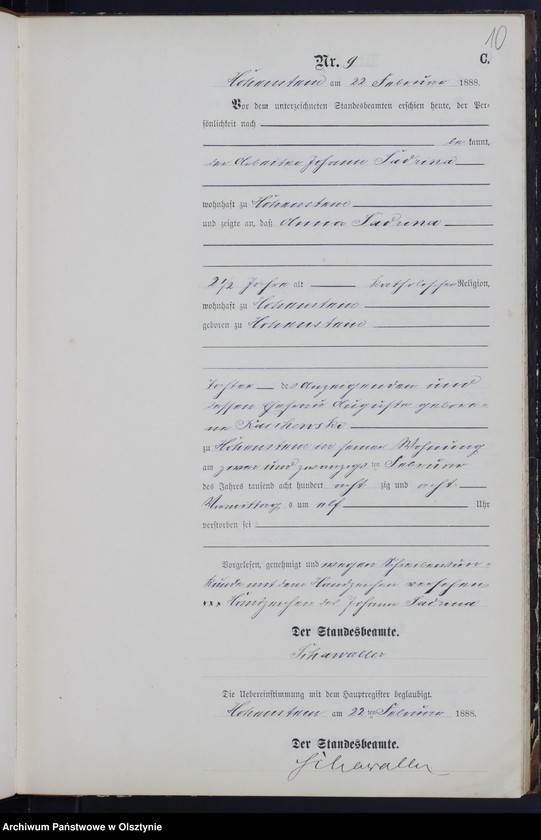 10
Nr. 9
C.
Hohenstein am 22 Februar 1888.
Vor dem unterzeichneten Standesbeamten erschien heute, der Per-
sönlichkeit nach
be kannt,
der Arbeiter Johann
wohnhaft zu Hohenstein
und zeigte an, daß Anna
2 1/2 Jahre alt katholischer Religion,
wohnhaft zu Hohenstein
geboren zu Hohenstein
Tochter des Anzeigenden und
dessen Ehefrau Auguste gebore-
ne
zu Hohenstein in seiner Wohnung
am zwei und zwanzigsten Februar
des Jahres tausend acht hundert acht zig und acht
Vormittags um elf Uhr
verstorben sei
Vorgelesen, genehmigt und wegen Schreibensun-
kunde mit dem Handzeichen versehen
+++ Handzeichen des Johann
Der Standesbeamte.
Schawaller
Die Uebereinstimmung mit dem Hauptregister beglaubigt.
Hohenstein am 22ten Februar 1888.
Der Standesbeamte.
Schawaller
Archiwum Państwowe w Olsztynie